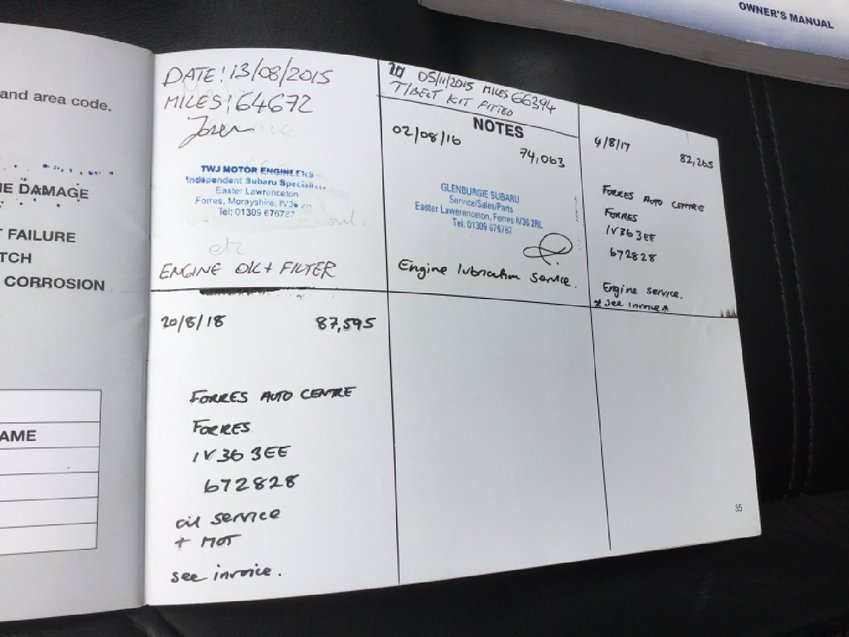 OWNER'S MANUAL
and area code.
E DAMAGE
FAILURE
TCH
CORROSION
AME
DATE: 13/08/2015
MILES: 64672
TWJ MOTOR ENGINEERS
Independent Subaru Specialists
Easter Lawrenceton
Forres, Morayshire, IV36
Tel: 01309 676787
etc
ENGINE OIL + FILTER
05/11/2015 MILES 66394
T/BELT KIT FITTED
NOTES
02/08/16
74,063
GLENBURGIE SUBARU
Service/Sales/Parts
Easter Lawerenceton, Forres IV36 2RL
Tel. 01309 676787
Engine lubrication service.
4/8/17
82,265
FORRES AUTO CENTRE
FORRES
IV36 3EE
672828
Engine service.
* see invoice *
20/8/18 87,595
FORRES AUTO CENTRE
FORRES
IV36 3EE
672828
oil service
+ MOT
see invoice.
35